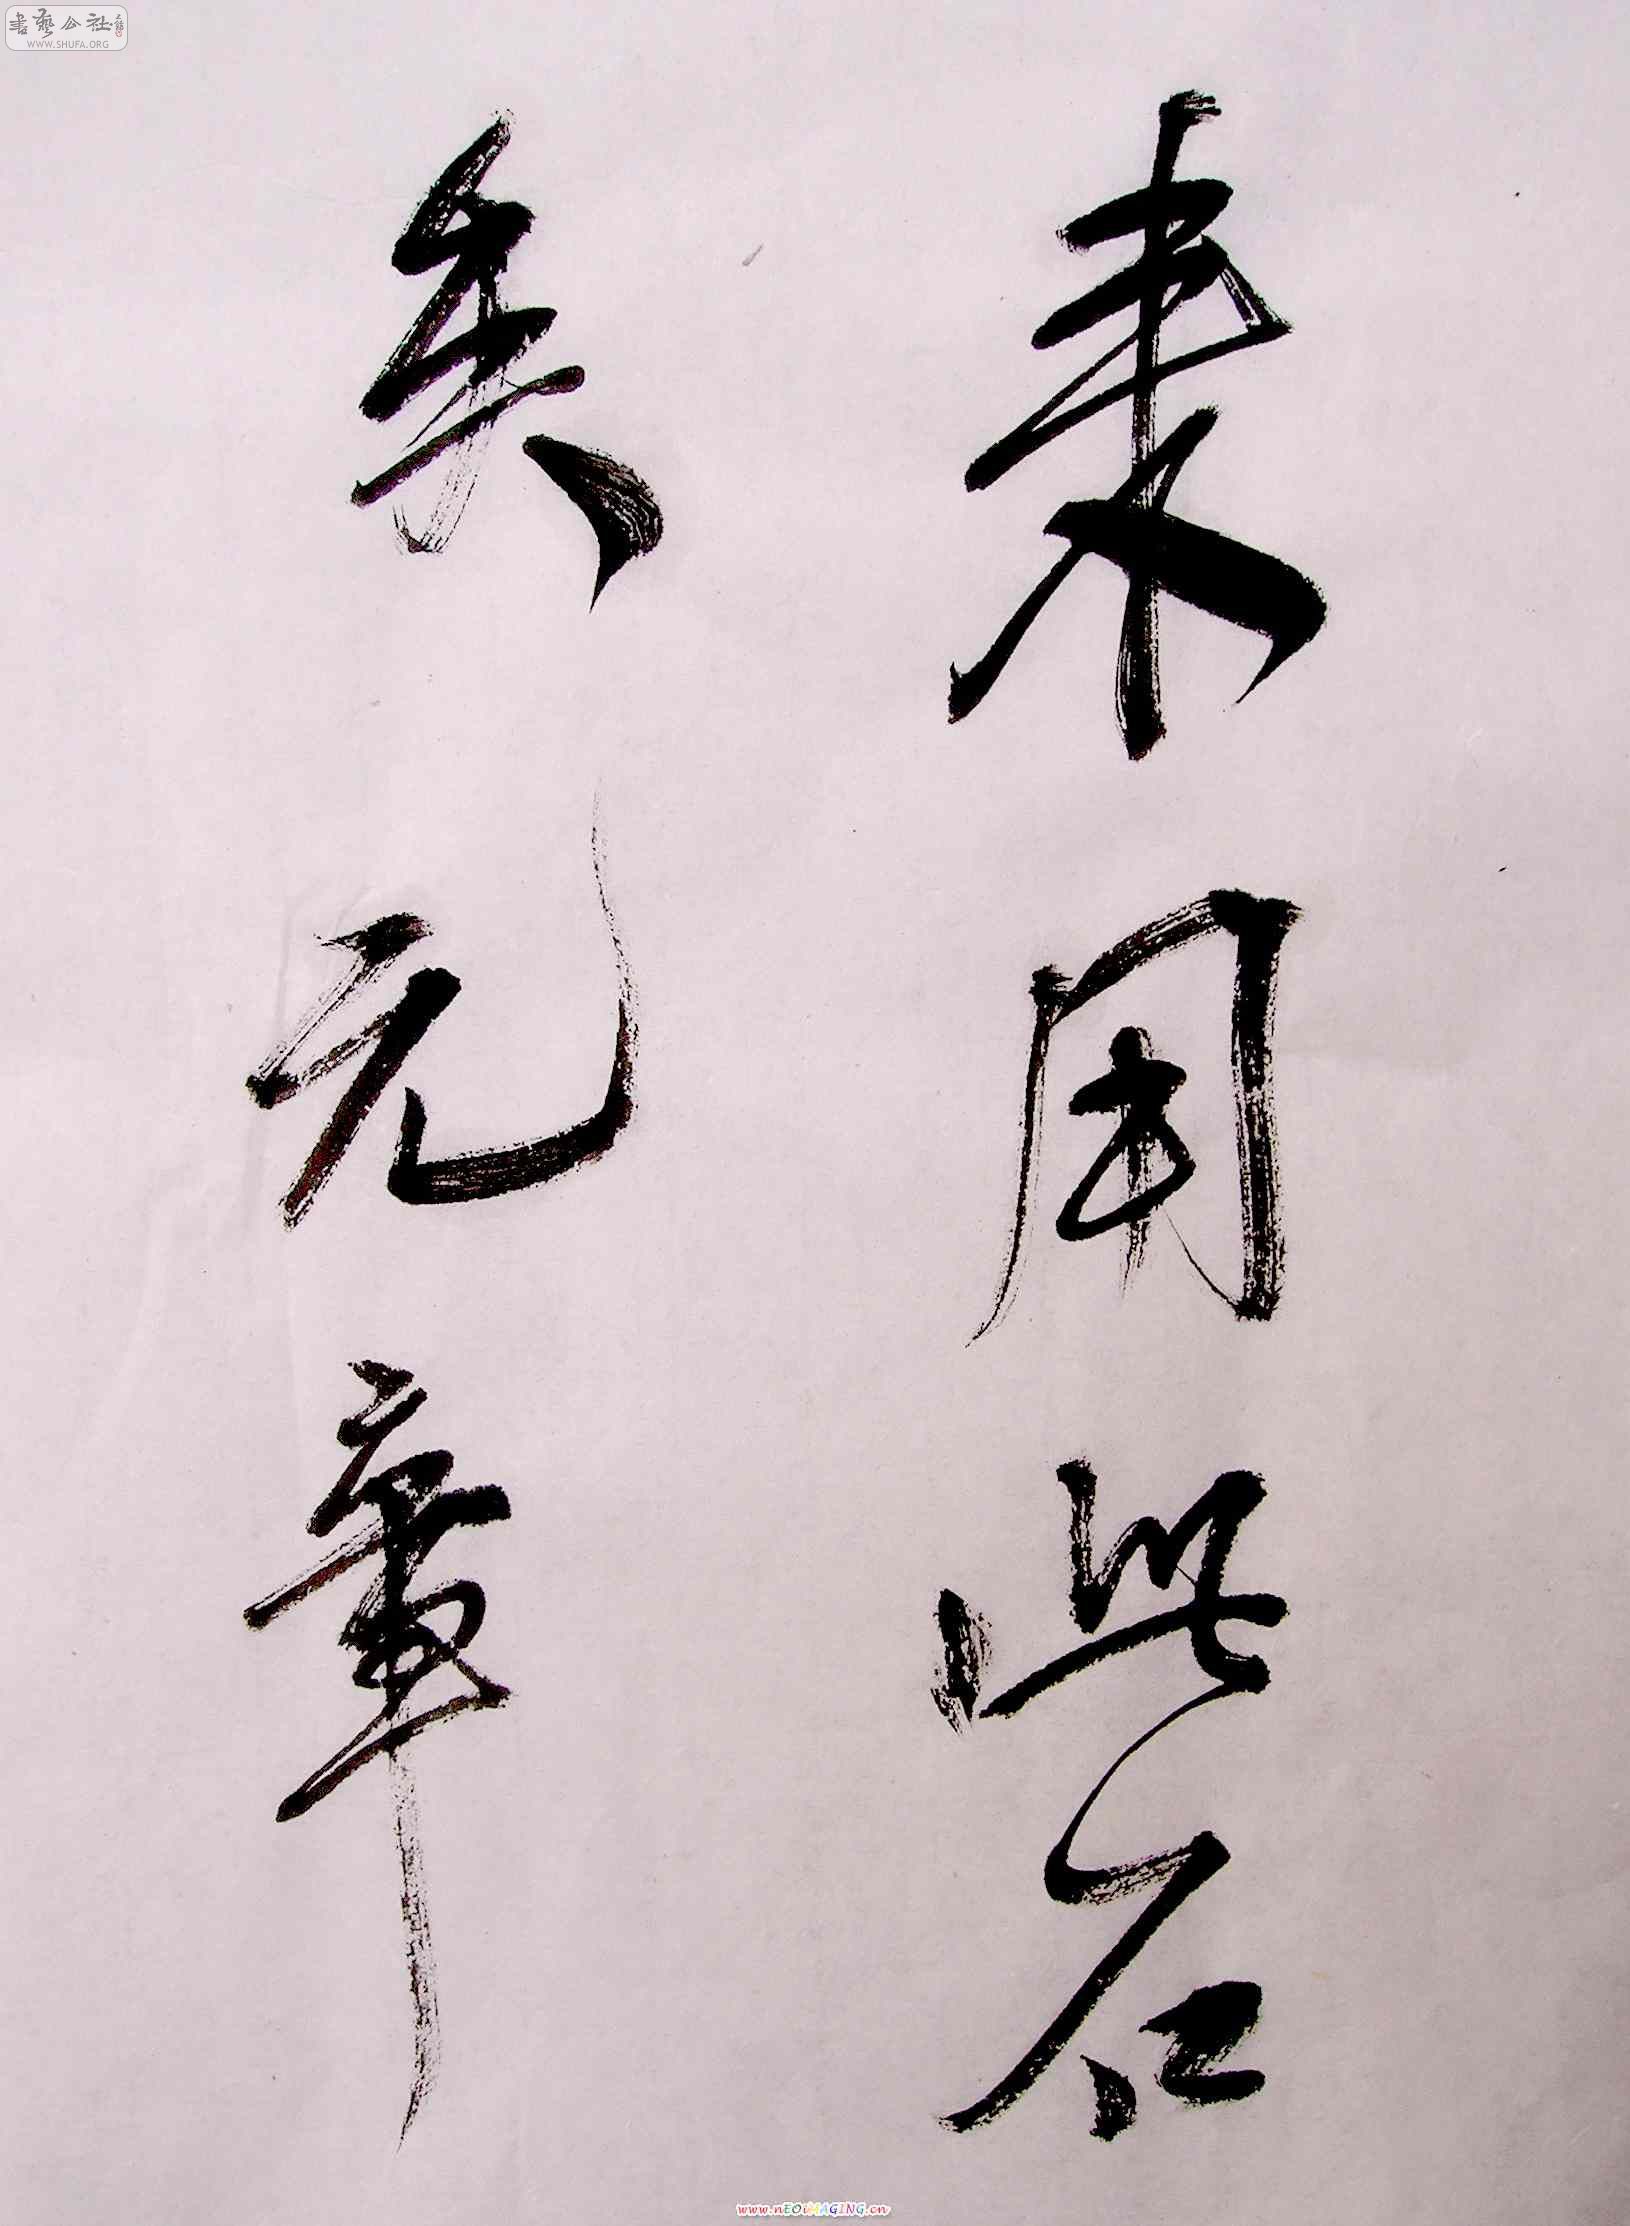 書藝公社
WWW.SHUFA.ORG
用此石
矣元章
www.nEOiMAGING.cn